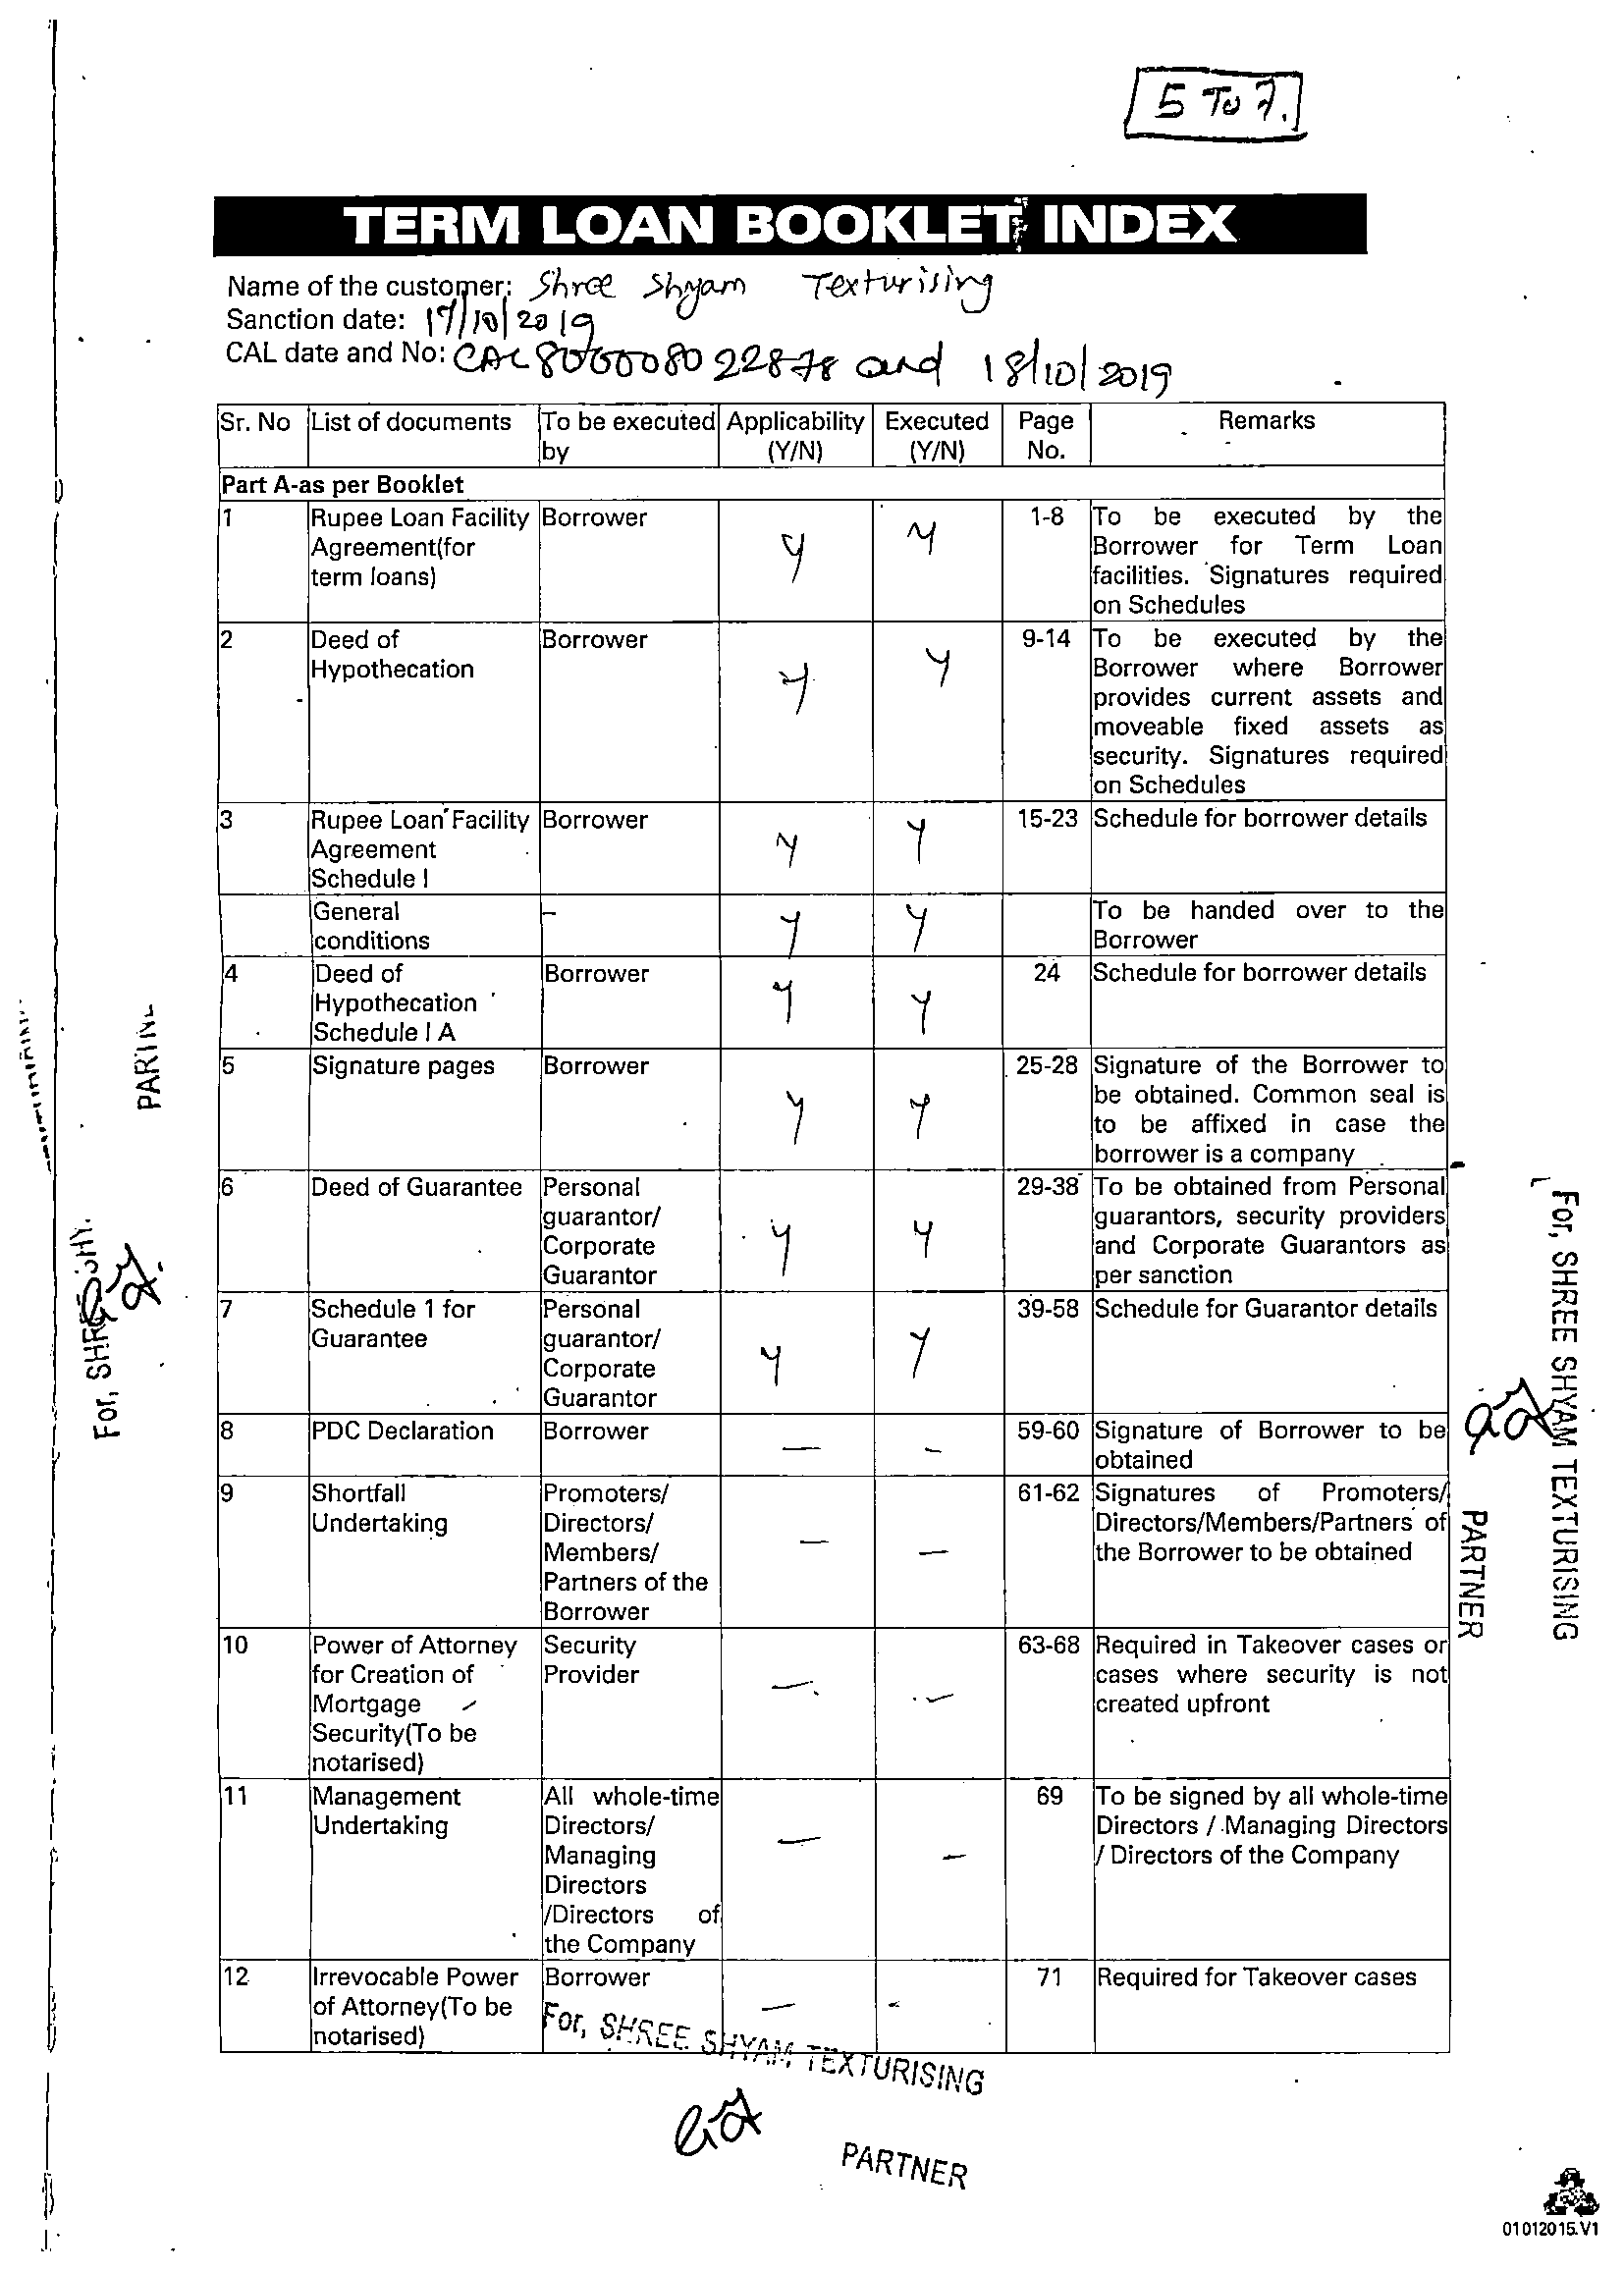 5 To 7.
TERM LOAN BOOKLET INDEX
Name of the customer: Shree Shyam Texturising
Sanction date: 17/10/2019
CAL date and No: and 18/10/2019
Sr. No List of documents To be executed by Applicability (Y/N) Executed (Y/N) Page No. Remarks
Part A-as per Booklet
1 Rupee Loan Facility Agreement(for term loans) Borrower Y Y 1-8 To be executed by the Borrower for Term Loan facilities. Signatures required on Schedules
2 Deed of Hypothecation Borrower Y Y 9-14 To be executed by the Borrower where Borrower provides current assets and moveable fixed assets as security. Signatures required on Schedules
3 Rupee Loan Facility Agreement Schedule I Borrower Y Y 15-23 Schedule for borrower details
General conditions - Y Y To be handed over to the Borrower
4 Deed of Hypothecation Schedule I A Borrower Y Y 24 Schedule for borrower details
5 Signature pages Borrower Y Y 25-28 Signature of the Borrower to be obtained. Common seal is to be affixed in case the borrower is a company
6 Deed of Guarantee Personal guarantor/ Corporate Guarantor Y Y 29-38 To be obtained from Personal guarantors, security providers and Corporate Guarantors as per sanction
7 Schedule 1 for Guarantee Personal guarantor/ Corporate Guarantor Y Y 39-58 Schedule for Guarantor details
8 PDC Declaration Borrower — — 59-60 Signature of Borrower to be obtained
9 Shortfall Undertaking Promoters/ Directors/ Members/ Partners of the Borrower — — 61-62 Signatures of Promoters/ Directors/Members/Partners of the Borrower to be obtained
10 Power of Attorney for Creation of Mortgage Security(To be notarised) Security Provider — — 63-68 Required in Takeover cases or cases where security is not created upfront
11 Management Undertaking All whole-time Directors/ Managing Directors /Directors of the Company — — 69 To be signed by all whole-time Directors / Managing Directors / Directors of the Company
12 Irrevocable Power of Attorney(To be notarised) Borrower — — 71 Required for Takeover cases
For, SHREE SHYAM TEXTURISING
PARTNER
For, SHREE SHYAM TEXTURISING
PARTNER
For,
01012015.V1